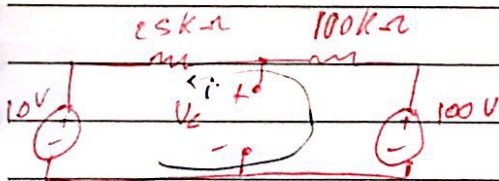 25KΩ 100KΩ
i
+
10V + Vc + 100V
- - -